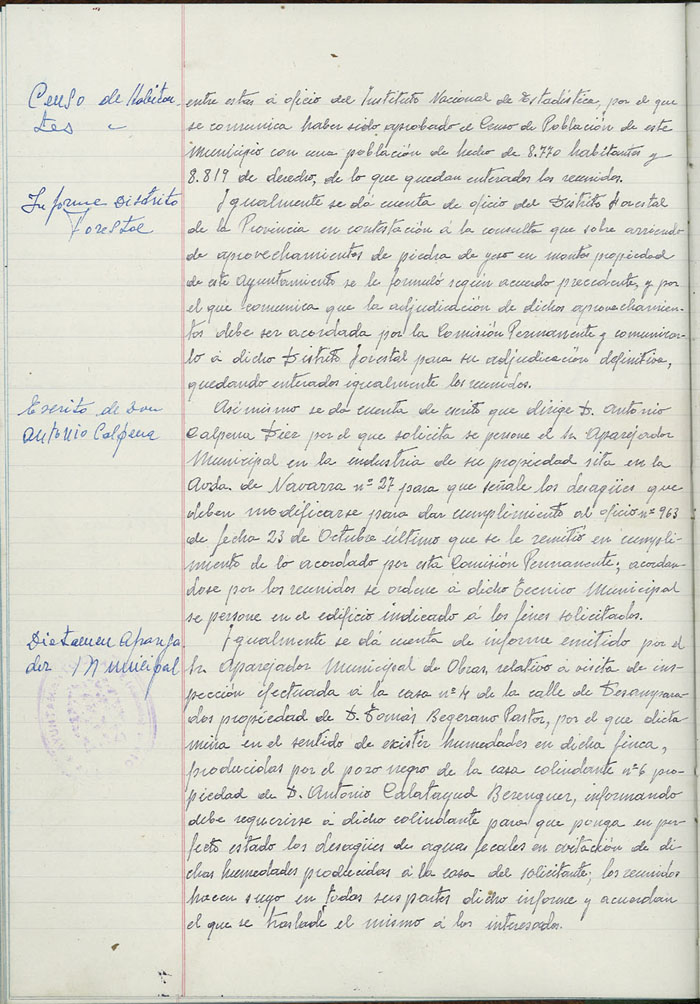 Censo de Habitan-
tes
entre estas á oficio del Instituto Nacional de Estadística, por el que
se comunica haber sido aprobado el Censo de Población de este
Municipio con una población de hecho de 8.770 habitantes y
8.819 de derecho, de lo que quedan enterados los reunidos.
Informe Distrito
Forestal
Igualmente se dá cuenta de oficio del Distrito Forestal
de la Provincia en contestación á la consulta que sobre arriendo
de aprovechamientos de piedra de yeso en montes propiedad
de este Ayuntamiento se le formuló según acuerdo precedente, y por
el que comunica que la adjudicación de dichos aprovechamien-
tos debe ser acordada por la Comisión Permanente y comunicar-
lo á dicho Distrito Forestal para su adjudicación definitiva,
quedando enterados igualmente los reunidos.
Escrito de Don
Antonio Calpena
Asimismo se dá cuenta de escrito que dirige D. Antonio
Calpena Diez por el que solicita se persone el Sr. Aparejador
Municipal en la industria de su propiedad sita en la
Avda. de Navarra nº 27 para que señale los desagües que
deben modificarse para dar cumplimiento al oficio nº 963
de fecha 23 de Octubre último que se le remitió en cumpli-
miento de lo acordado por esta Comisión Permanente; acordan-
dose por los reunidos se ordene á dicho Tecnico Municipal
se persone en el edificio indicado á los fines solicitados.
Dictamen Apareja
dor Municipal
Igualmente se dá cuenta de informe emitido por el
Sr. Aparejador Municipal de Obras, relativo á visita de ins-
pección efectuada á la casa nº 4 de la calle de Desampara-
dos propiedad de D. Tomás Begerano Pastor, por el que dicta
mina en el sentido de existir humedades en dicha finca,
producidas por el pozo negro de la casa colindante nº 6 pro-
piedad de D. Antonio Calatayud Berenguer, informando
debe requerirse á dicho colindante para que ponga en per-
fecto estado los desagües de aguas fecales en evitación de di-
chas humedades producidas á la casa del solicitante; los reunidos
hacen suyo en todas sus partes dicho informe y acuerdan
el que se traslade el mismo á los interesados.
AYUNTAMIENTO